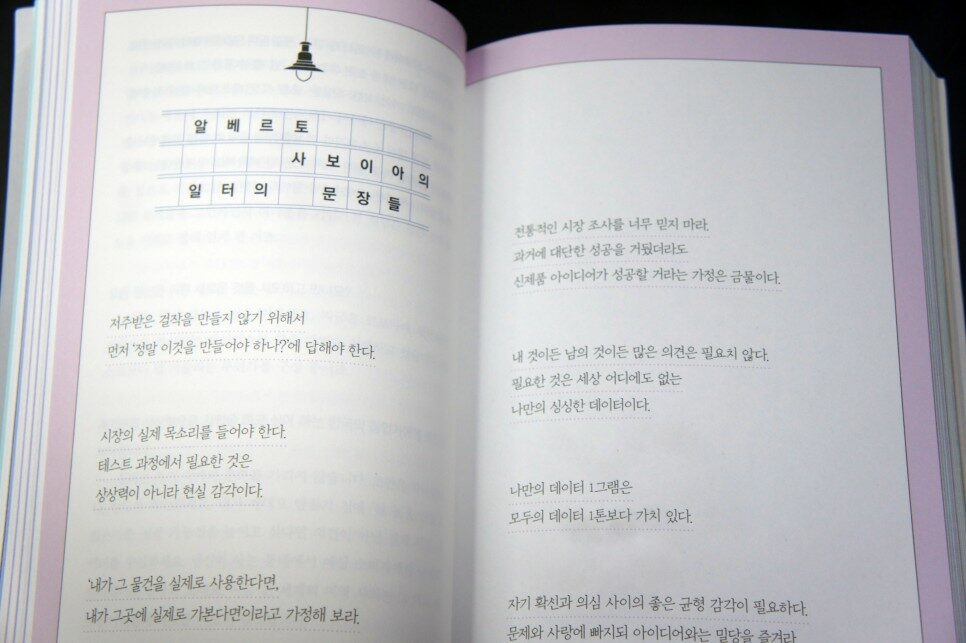 알베르토
사보이아의
일터의 문장들
저주받은 걸작을 만들지 않기 위해서
먼저 '정말 이것을 만들어야 하나?'에 답해야 한다.
시장의 실제 목소리를 들어야 한다.
테스트 과정에서 필요한 것은
상상력이 아니라 현실 감각이다.
'내가 그 물건을 실제로 사용한다면,
내가 그곳에 실제로 가본다면'이라고 가정해 보라.
전통적인 시장 조사를 너무 믿지 마라.
과거에 대단한 성공을 거뒀더라도
신제품 아이디어가 성공할 거라는 가정은 금물이다.
내 것이든 남의 것이든 많은 의견은 필요치 않다.
필요한 것은 세상 어디에도 없는
나만의 싱싱한 데이터이다.
나만의 데이터 1그램은
모두의 데이터 1톤보다 가치 있다.
자기 확신과 의심 사이의 좋은 균형 감각이 필요하다.
문제와 사랑에 빠지되 아이디어와는 밀당을 즐겨라